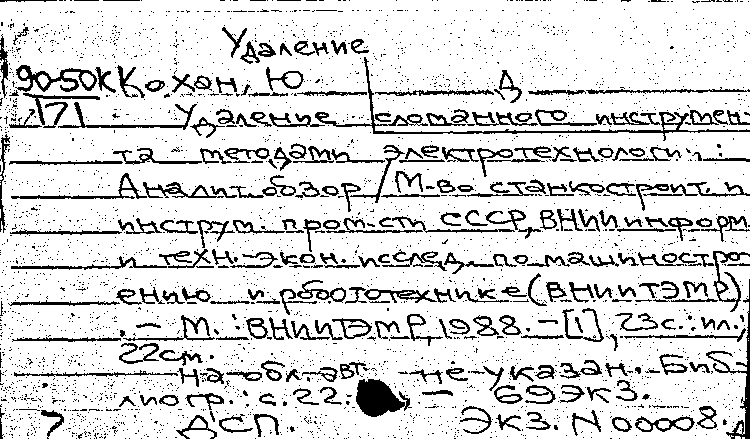 Удаление
90-50К Кохан, Ю. Д
171 Удаление сломанного инструмен-
та методами электротехнологии :
Аналит. обзор / М-во станкостроит. и
инструм. пром-сти СССР, ВНИИ информ.
и техн.-экон. исслед. по машиностро-
ению и робототехнике (ВНИИТЭМР)
. - М. : ВНИИТЭМР, 1988. - [1], 23 с. : ил.;
22 см.
На обл. авт. не указан. - Биб-
лиогр.: с. 22. - 69 экз.
ДСП. Экз. N 00008.